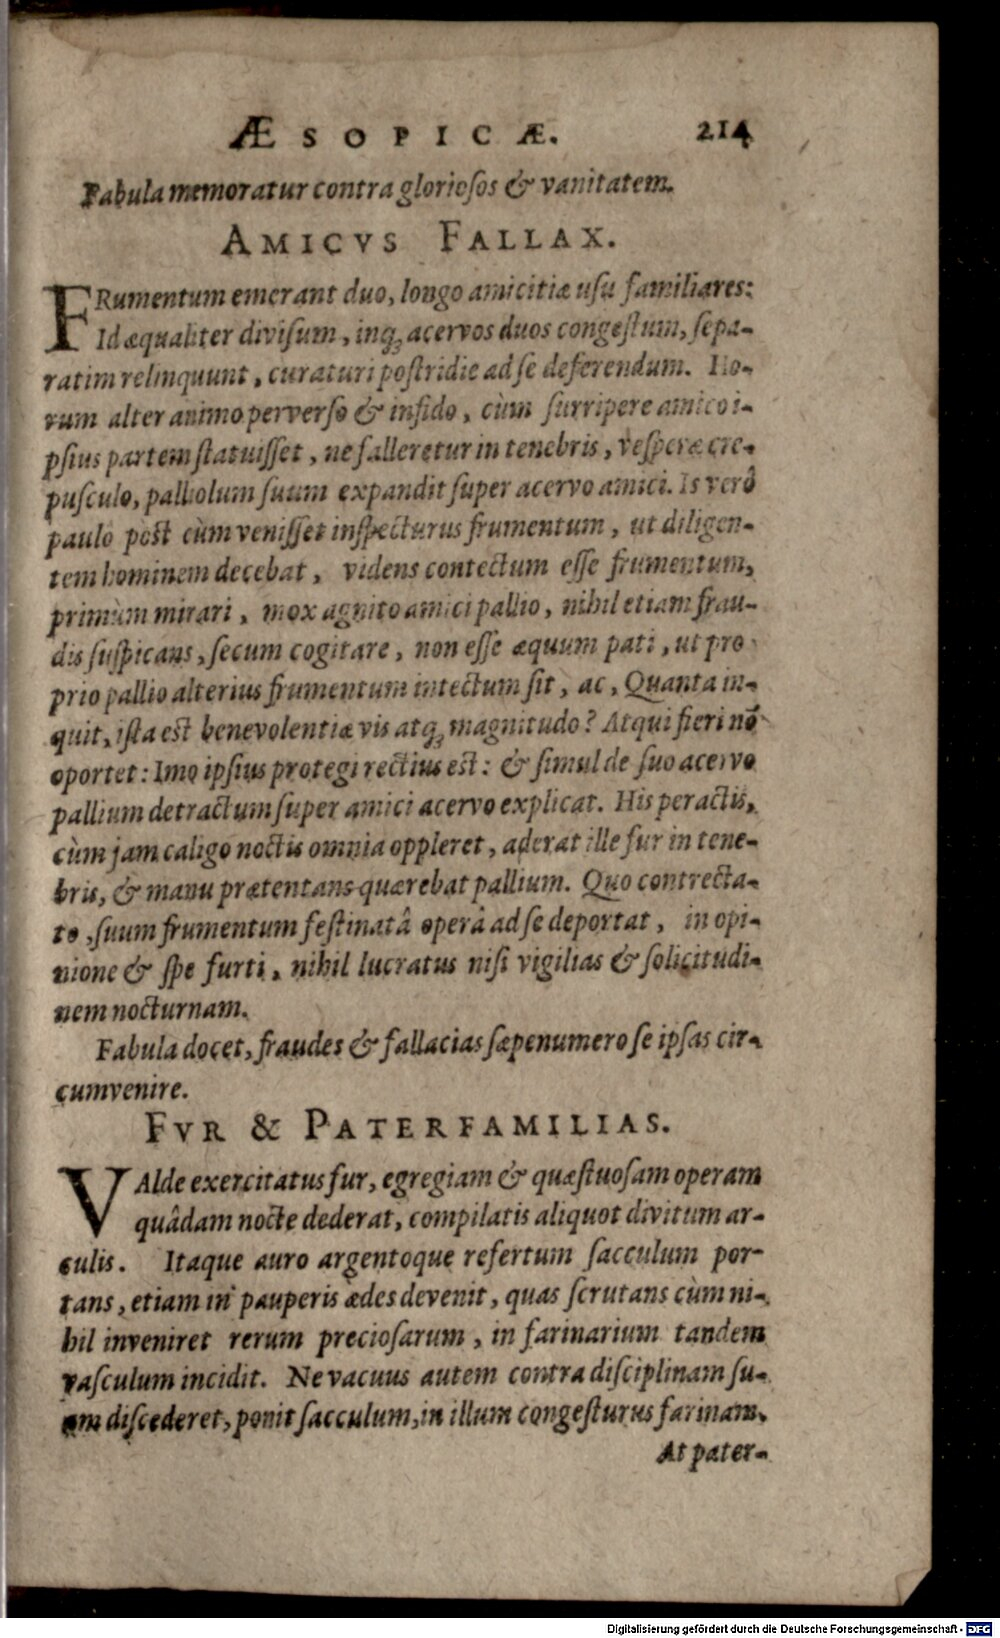 ÆSOPICÆ. 214
Fabula memoratur contra gloriosos & vanitatem.
AMICVS FALLAX.
FRumentum emerant duo, longo amicitiæ usu familiares:
Id æqualiter divisum, inq; acervos duos congestum, sepa-
ratim relinquunt, curaturi postridie ad se deferendum. Ho-
rum alter animo perverso & infido, cùm surripere amico i-
psius partem statuisset, ne falleretur in tenebris, vesperæ cre-
pusculo, palliolum suum expandit super acervo amici. Is verò
paulò pòst cùm venisset inspecturus frumentum, ut diligen-
tem hominem decebat, videns contectum esse frumentum,
primùm mirari, mox agnito amici pallio, nihil etiam frau-
dis suspicans, secum cogitare, non esse æquum pati, ut pro-
prio pallio alterius frumentum intectum sit, ac, Quanta in-
quit, ista est benevolentiæ vis atq; magnitudo? Atqui fieri nõ
oportet: Imo ipsius protegi rectius est: & simul de suo acervo
pallium detractum super amici acervo explicat. His peractis,
cùm jam caligo noctis omnia oppleret, aderat ille fur in tene-
bris, & manu prætentans quærebat pallium. Quo contrecta-
to, suum frumentum festinatâ operâ ad se deportat, in opi-
nione & spe furti, nihil lucratus nisi vigilias & solicitudi-
nem nocturnam.
Fabula docet, fraudes & fallacias sæpenumero se ipsas cir-
cumvenire.
FVR & PATERFAMILIAS.
VAlde exercitatus fur, egregiam & quæstuosam operam
quâdam nocte dederat, compilatis aliquot divitum ar-
culis. Itaque auro argentoque refertum sacculum por-
tans, etiam in pauperis ædes devenit, quas scrutans cùm ni-
hil inveniret rerum preciosarum, in farinarium tandem
vasculum incidit. Ne vacuus autem contra disciplinam su-
am discederet, ponit sacculum, in illum congesturus farinam.
At pater-
Digitalisierung gefördert durch die Deutsche Forschungsgemeinschaft - DFG